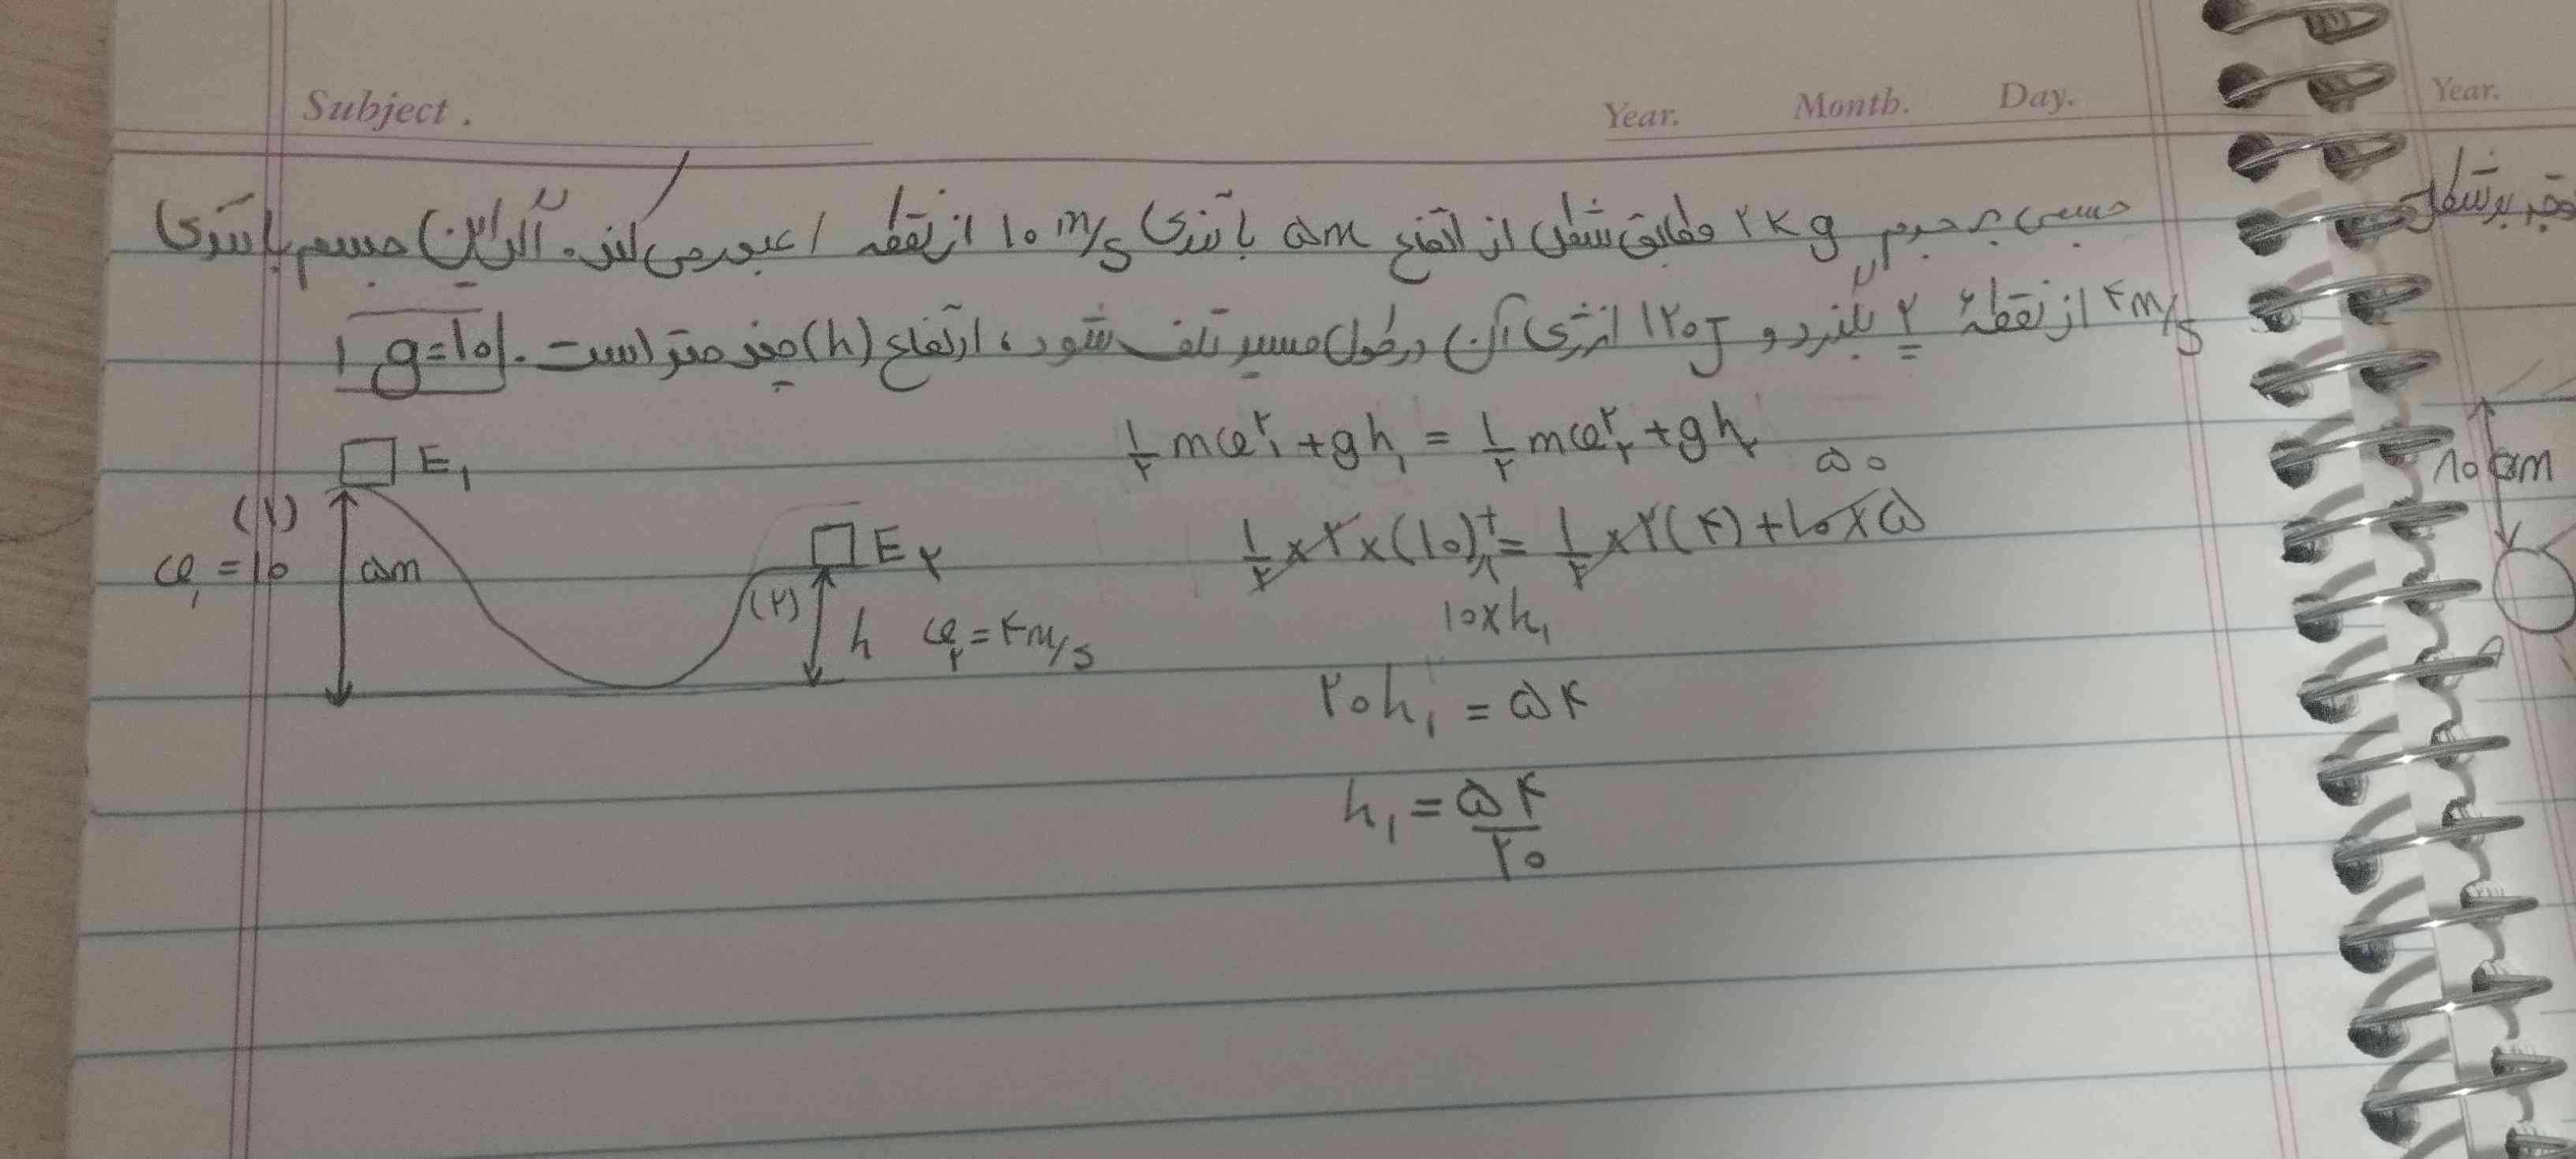 Subject . Year. Month. Day.
جسمی به جرم ۲kg مطابق شکل از ارتفاع ۵m با تندی ۱۰ m/s از نقطه ۱ عبور می کند. اگر این جسم با تندی
۴m/s از نقطهٔ ۲ بگذرد و ۱۲۰J انرژی آن در طول مسیر تلف شود، ارتفاع (h) چند متر است. g=۱۰
E₁
(۱)
v₁ = ۱۰
۵m
E₂
(۲)
h v₂ = ۴m/s
½ mv₁² + gh₁ = ½ mv₂² + gh₂
۵۰
½ × ۲ × (۱۰) + = ½ × ۲(۴) + ۱۰×۵
۱۰×h₁
۲۰h₁ = ۵۴
h₁ = ۵۴/۲۰
Year.
۱۰ cm